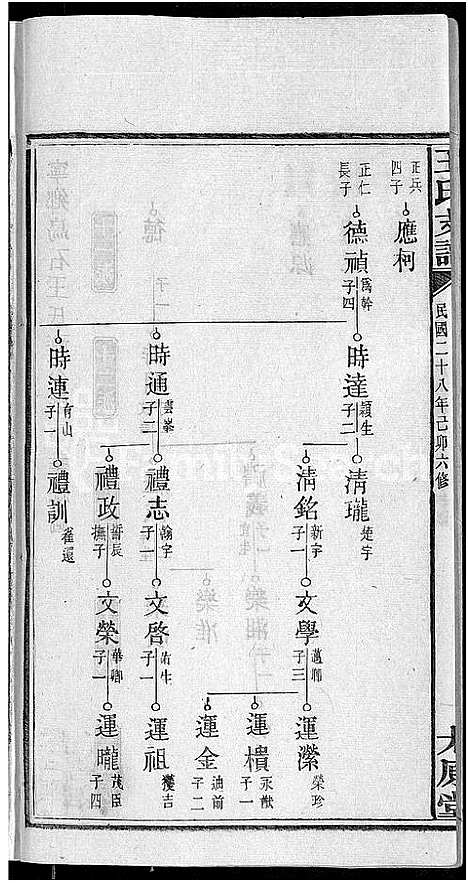 王氏支譜
民國二十八年己卯六修
太原堂
正兵
四子
應柯
正仁
長子
德禎
爲幹
子四
時達
穎生
子二
時通
雲峯
子二
時連
有山
子一
清瓏
楚宇
清銘
新宇
子一
禮志
翰宇
子一
禮政
哲長
撫子
禮訓
文學
邁鄉
子三
文啓
佑生
子一
文榮
華卿
子一
運瀠
榮珍
運樻
永猷
子一
運金
迪前
子二
運祖
運曨
茂臣
子四